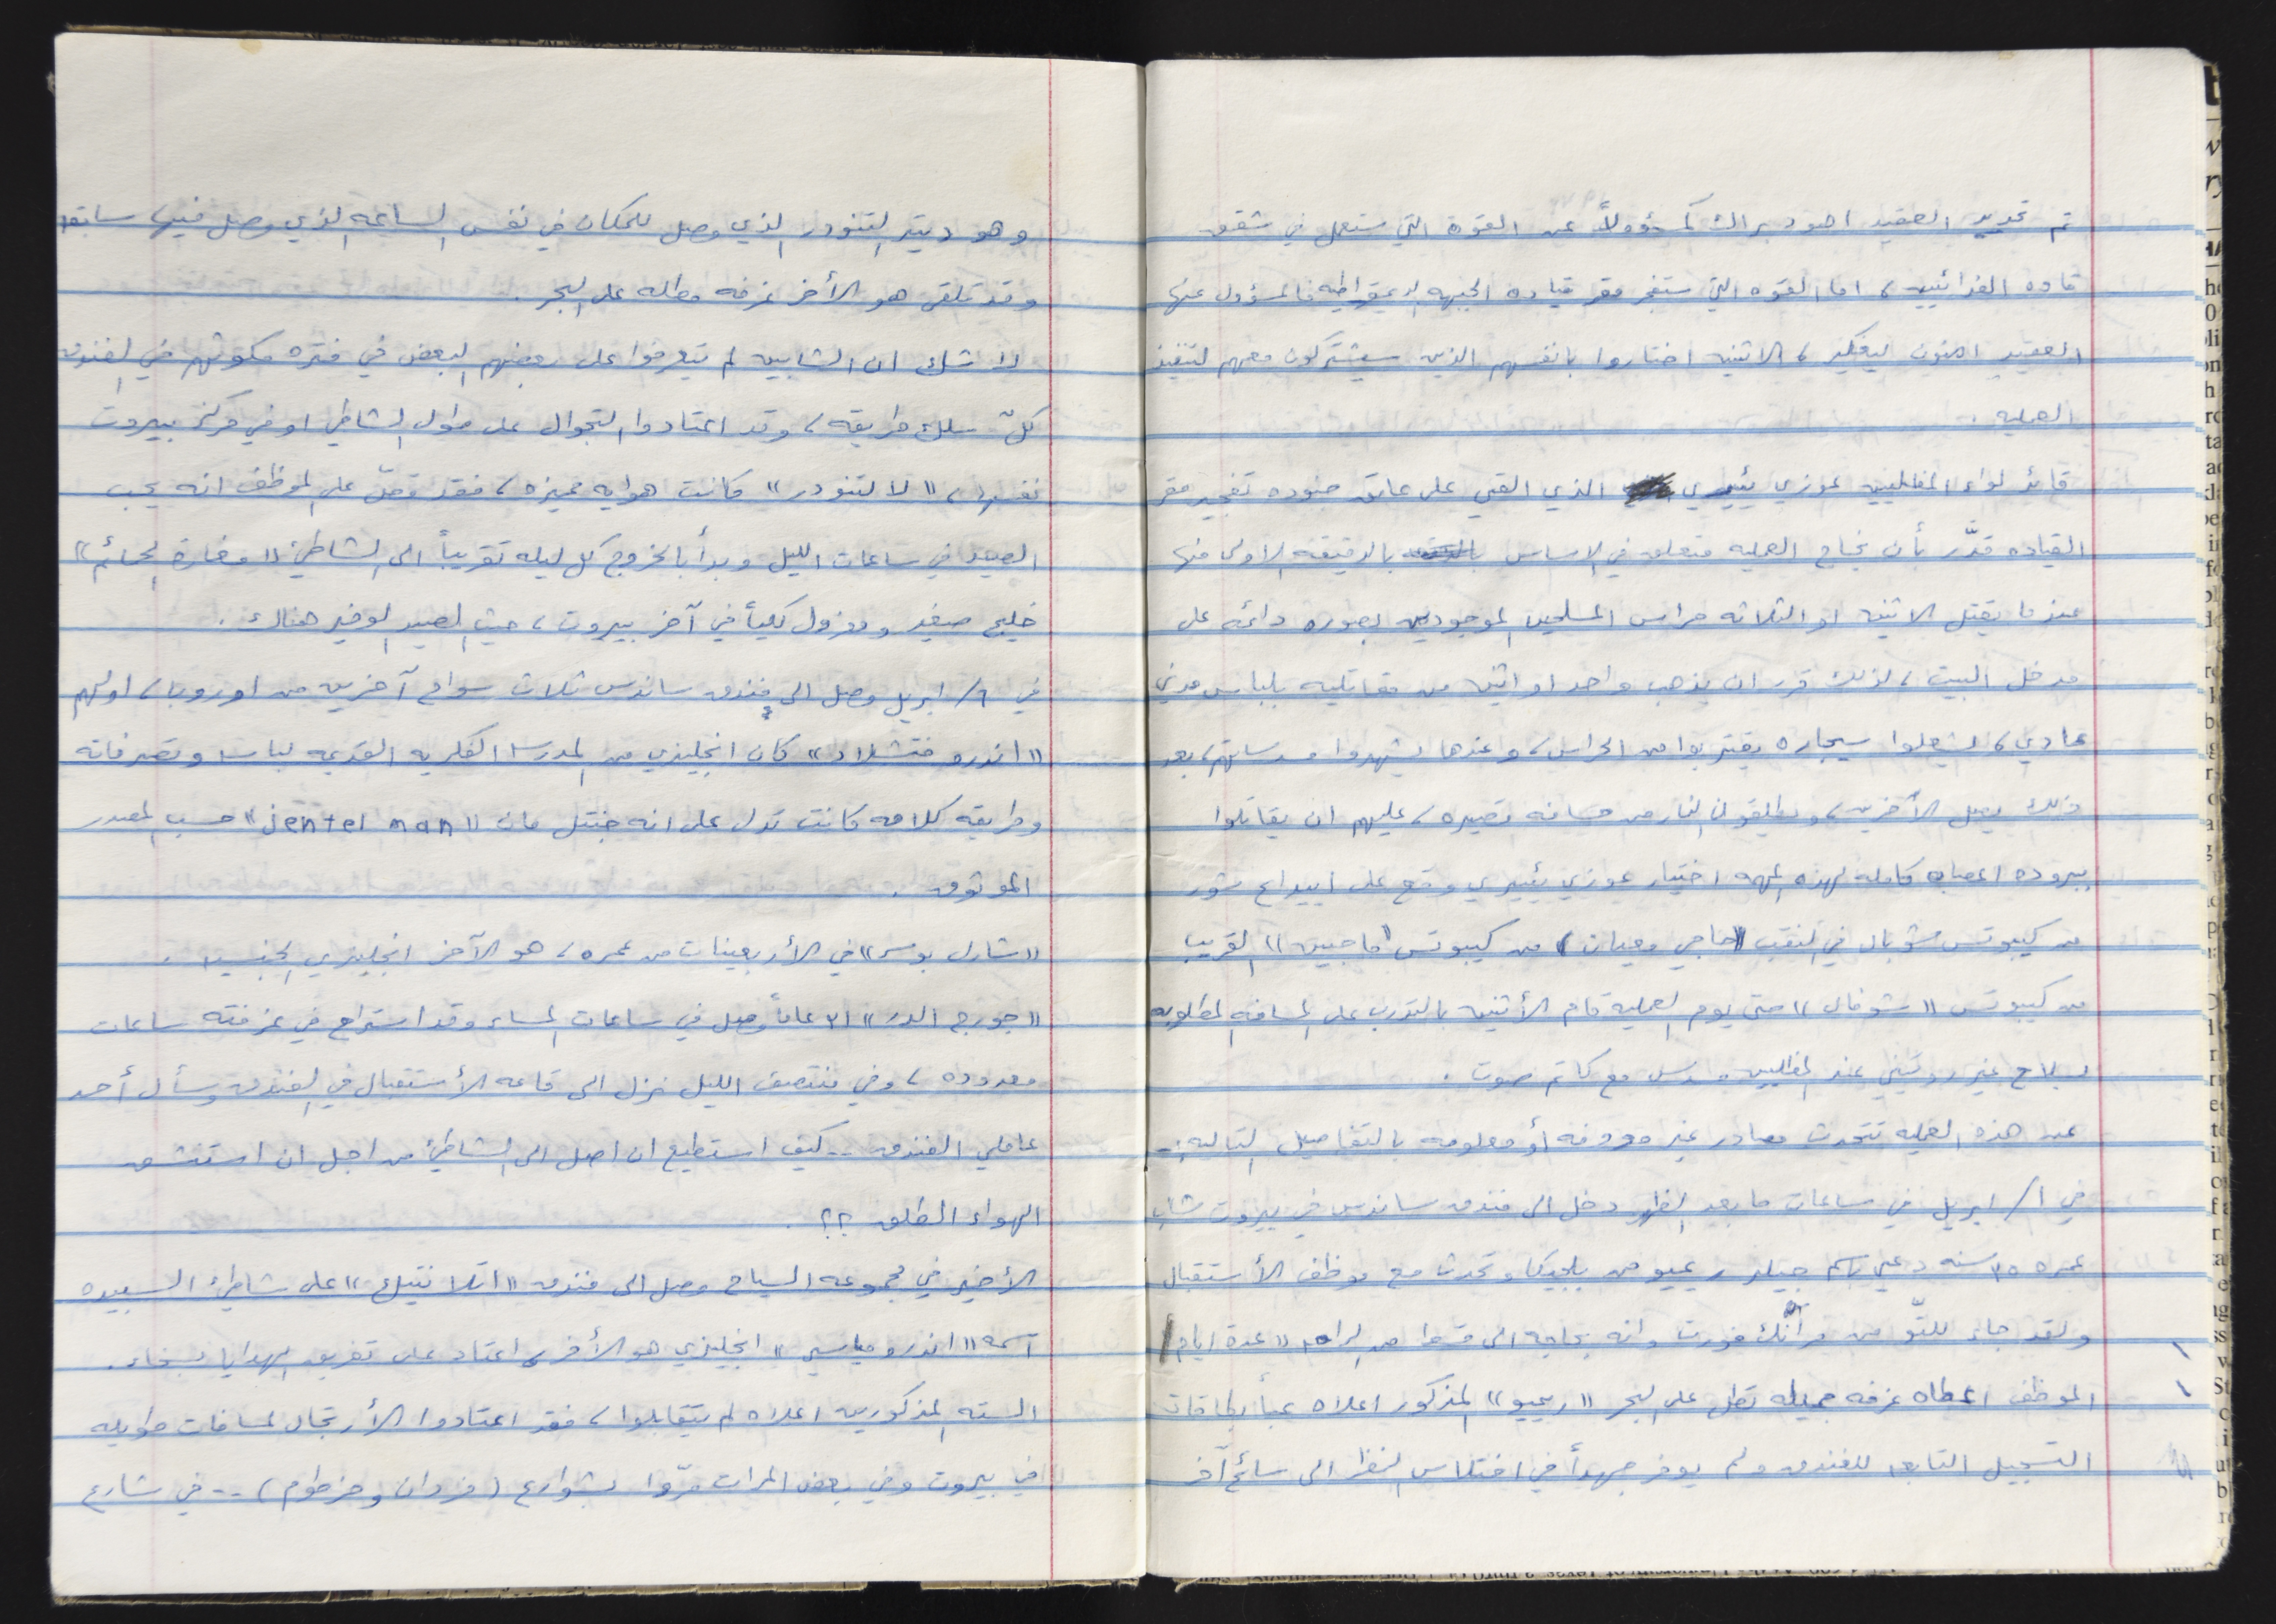 تم تحديد العقيد اهود براك كمسؤولاً عن القوة التي ستعمل في شقق
قاده الفدائيين، اما القوه التي ستفجر مقر قياده الجبهه الديمقراطيه فالمسؤول عنها
العقيد امنون ليفكين، الاثنين اختاروا بانفسهم الذين سيشتركون معهم لتنفيذ
العمليه .
قائد لواء المظليين عوزي يئيري الذي القي على عاتق جنوده تفجير مقر
القياده قدّر بأن نجاح العمليه متعلق في الاساس بالدقيقه الاولى منها
عندما يقتل الاثنين او الثلاثه حراس المسلحين الموجودين بصوره دائمه على
مدخل البيت، لذلك قرر ان يذهب واحد او اثنين من مقاتليه بلباس مدني
عادي، ليشعلوا سيجاره يقتربوا من الحراس، وعندها يشهروا مسدساتهم، بعد
ذلك يصل الآخرين، ويطلقون النار من مسافه قصيره، عليهم ان يقاتلوا
ببروده اعصاب كامله لهذه المهمه اختيار عوزي يئيري وقع على ابيداع شور
من كيبوتس شوبال في النقب "حاجي معيان" من كيبوتس "ماجين" القريب
من كيبوتس "شوفال" حتى يوم العمليه قام الأثنين بالتدرب على المسافه المطلوبه
بسلاح غير روتيني عند المظليين مسدس مع كاتم صوت .
عن هذه العمليه تتحدث مصادر غير معروفه أو معلومه بالتفاصيل التاليه :-
في ١/ ابريل في ساعات ما بعد الظهر دخل الى فندق ساندس في بيروت شاب
عمره ٣٥ سنه دعي باسم جيلبر ريمبو من بلجيكا وتحدث مع موظف الأستقبال
ولقد جاء للتّو من فرانكفورت وانه بحاجه الى قسط من الراحه "عدة ايام"
الموظف اعطاه غرفه جميله تطل على البحر "ريمبو" المذكور اعلاه عبأ بطاقات
التسجيل التابعه للفندق ولم يوفر جهداً في اختلاس النظر الى سائح آخر
وهو ديتر التنودر الذي وصل للمكان في نفس الساعه الذي وصل فيها سابقه
وقد تلقى هو الأخر غرفه مطله على البحر .
لا شك ان الشابين لم يتعرفوا على بعضهم البعض في فتره مكوثهم في الفندق
كلّ سلك طريقه، وقد اعتادوا التجوال على طول الشاطئ او في مركز بيروت
نفسها، "لا لتنودر" كانت هوايه مميزه، فقد قصّ على الموظف انه يحب
الصيد في ساعات الليل وبدأ بالخروج كل ليله تقريباً الى الشاطئ "مغارة الحمائم"
خليج صغير ومعزول كلياً في آخر بيروت، حيث الصيد الوفير هناك .
في ٦/ ابريل وصل الى فندق ساندس ثلاث سواح آخرين من اوروبا، اولهم
"اندرو فتشلاد" كان انجليزي من المدرسه الفكريه القديمه لباسه وتصرفاته
وطريقه كلامه كانت تدل على انه جنتل مان "jentel man" حسب المصدر
الموثوق .
"شارل بوسر" في الأربعينات من عمره، هو الآخر انجليزي الجنسيه .
"جورج الدر" ٣١ عاماً وصل في ساعات المساء وقد استراح في غرفته ساعات
معدوده، وفي منتصف الليل نزل الى قاعه الأستقبال في الفندق وسأل أحد
عاملي الفندق -- كيف استطيع ان اصل الى الشاطئ من اجل ان استنشق
الهواء الطلق ؟؟ .
الأخير في مجموعه السياح وصل الى فندق "اتلانتيك" على شاطئ السبيده
اسمه "اندرو ماسي" انجليزي هو الأخر، اعتاد على تفريق الهدايا بسخاء .
السته المذكورين اعلاه لم يتقابلوا، فقد اعتادوا الأرتجال لمسافات طويله
في بيروت وفي بعض المرات مرّوا بشوارع (فردان وخرطوم) -- في شارع